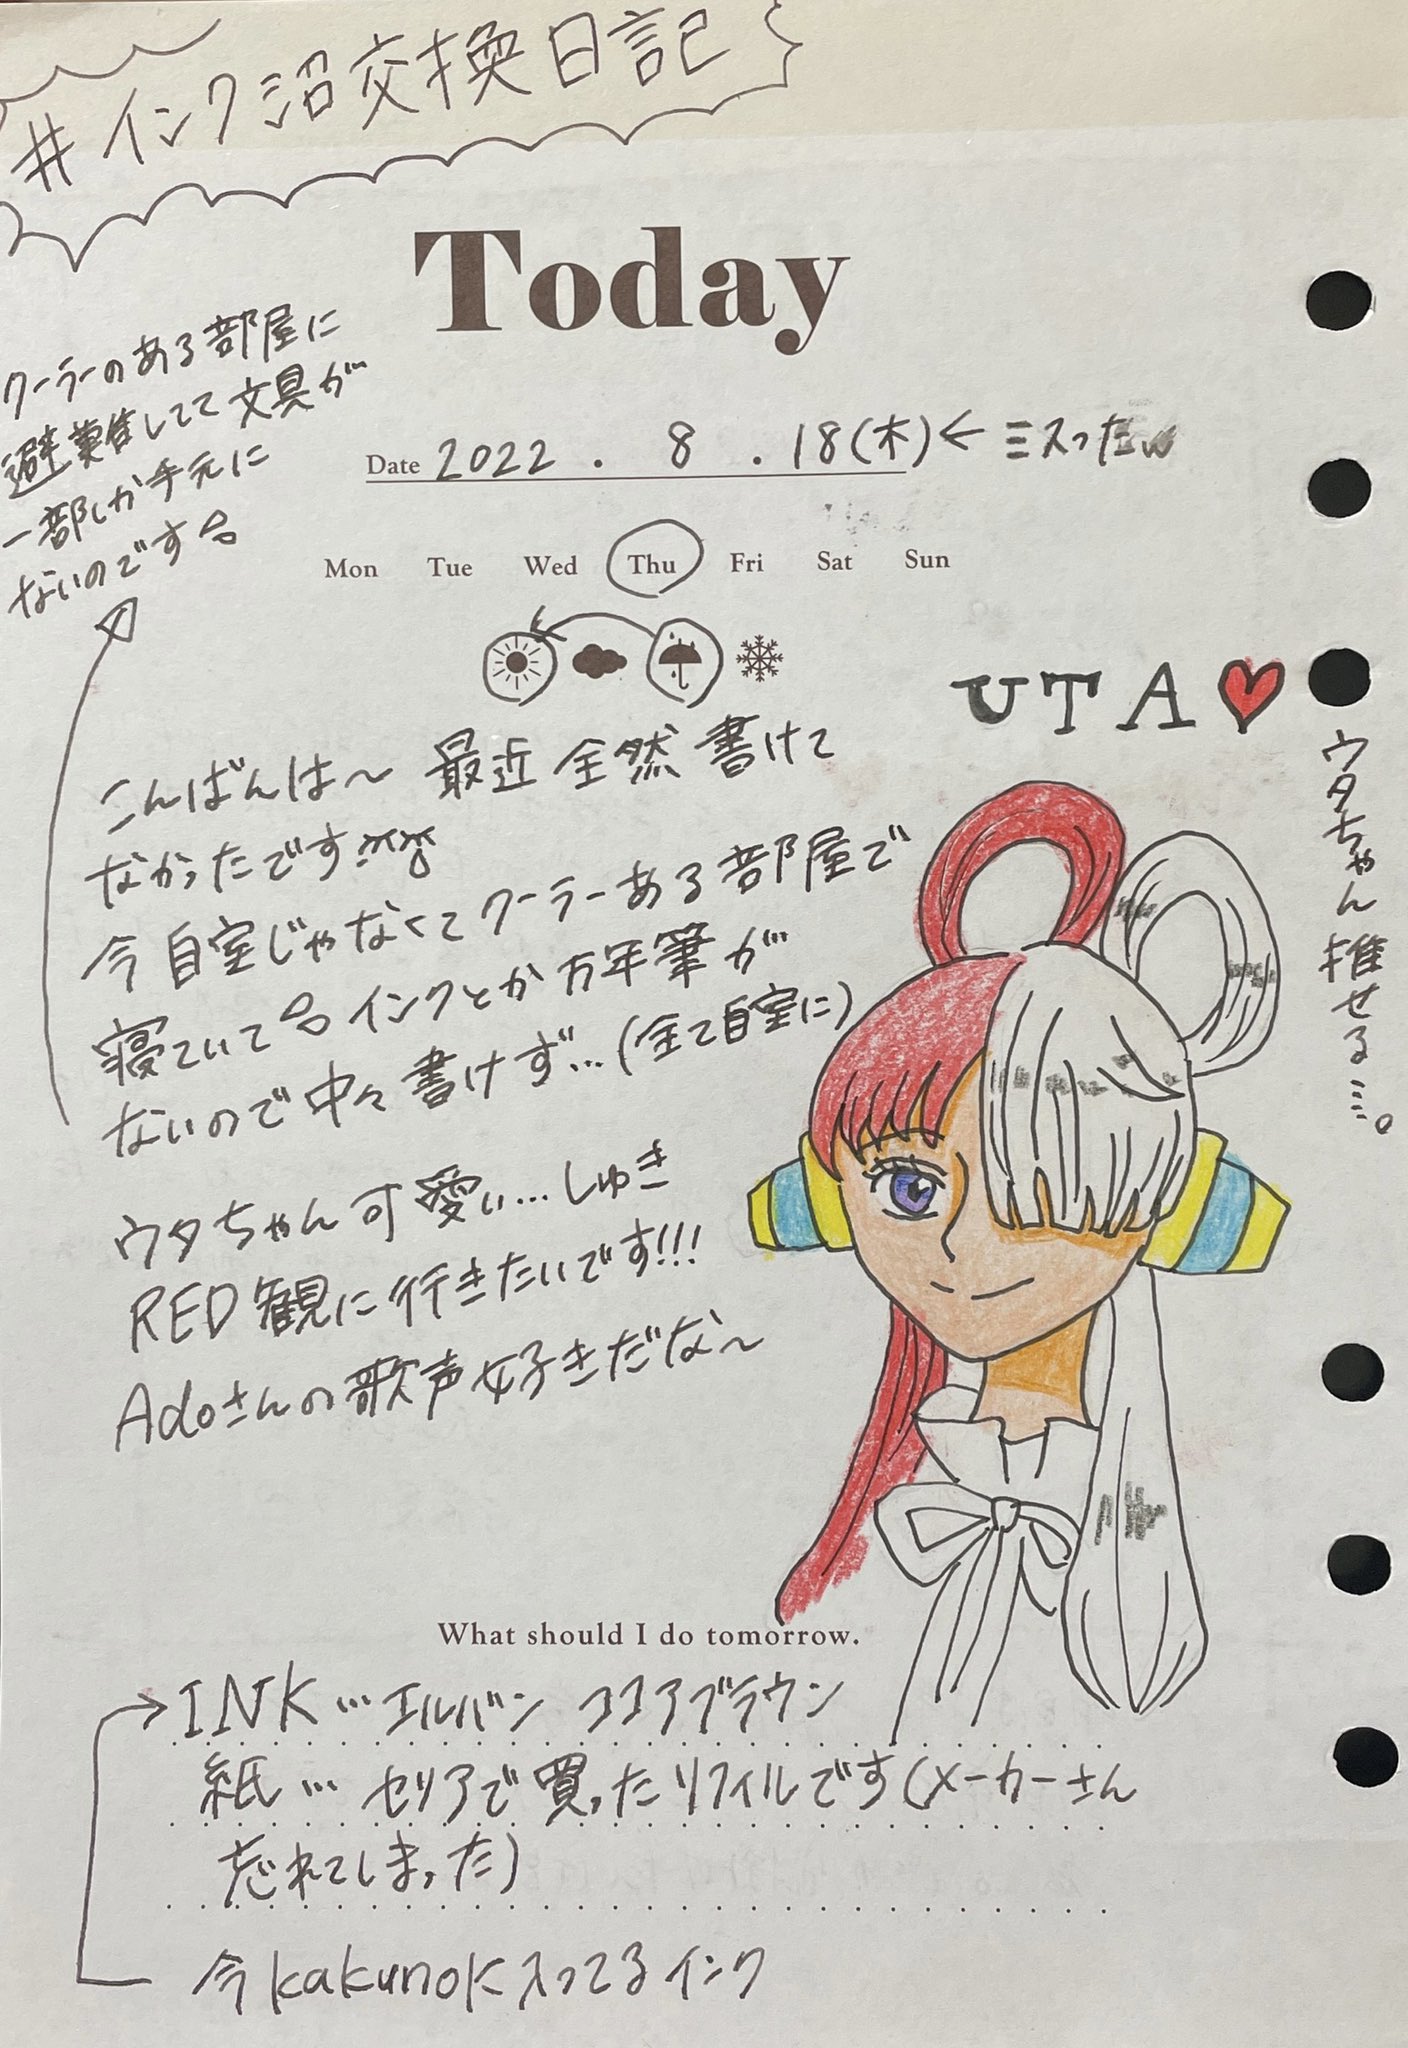 #インク沼交換日記
Today
クーラーのある部屋に
避難してて文具が
一部しか手元に
ないのです
Date 2022 . 8 . 18(木) ← ミスったw
Mon Tue Wed Thu Fri Sat Sun
UTA
ウタちゃん推せる…。
こんばんは〜 最近全然書けて
なかったです
今自室じゃなくてクーラーある部屋で
寝ていて インクとか万年筆が
ないので中々書けず…(全て自室に)
ウタちゃん可愛い…しゅき
RED観に行きたいです!!!
Adoさんの歌声好きだな〜
What should I do tomorrow.
→INK…エルバン ココアブラウン
紙…セリアで買ったリフィルです(メーカーさん
忘れてしまった)
今kakunoに入ってるインク